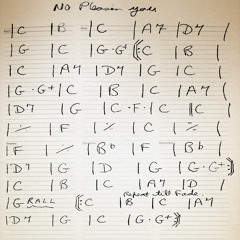 No Pleasin you
|C |B |C |A7 |D7 |
|G |C |G·G+ ||:C |B |
|C |A7 |D7 |G |C |
|G·G+ |C |B |C |A7 |
|D7 |G |C·F· |C |C |
|٪ |F |٪ |C |٪ |
|F |٪ |Bb |F |Bb |
|D7 |G |D |G |G·G+ :||
|C |B |C |A7 |D |
Repeat till Fade
|G RALL ||:C |B |C |A7
|D7 |G |C |G·G+ :||